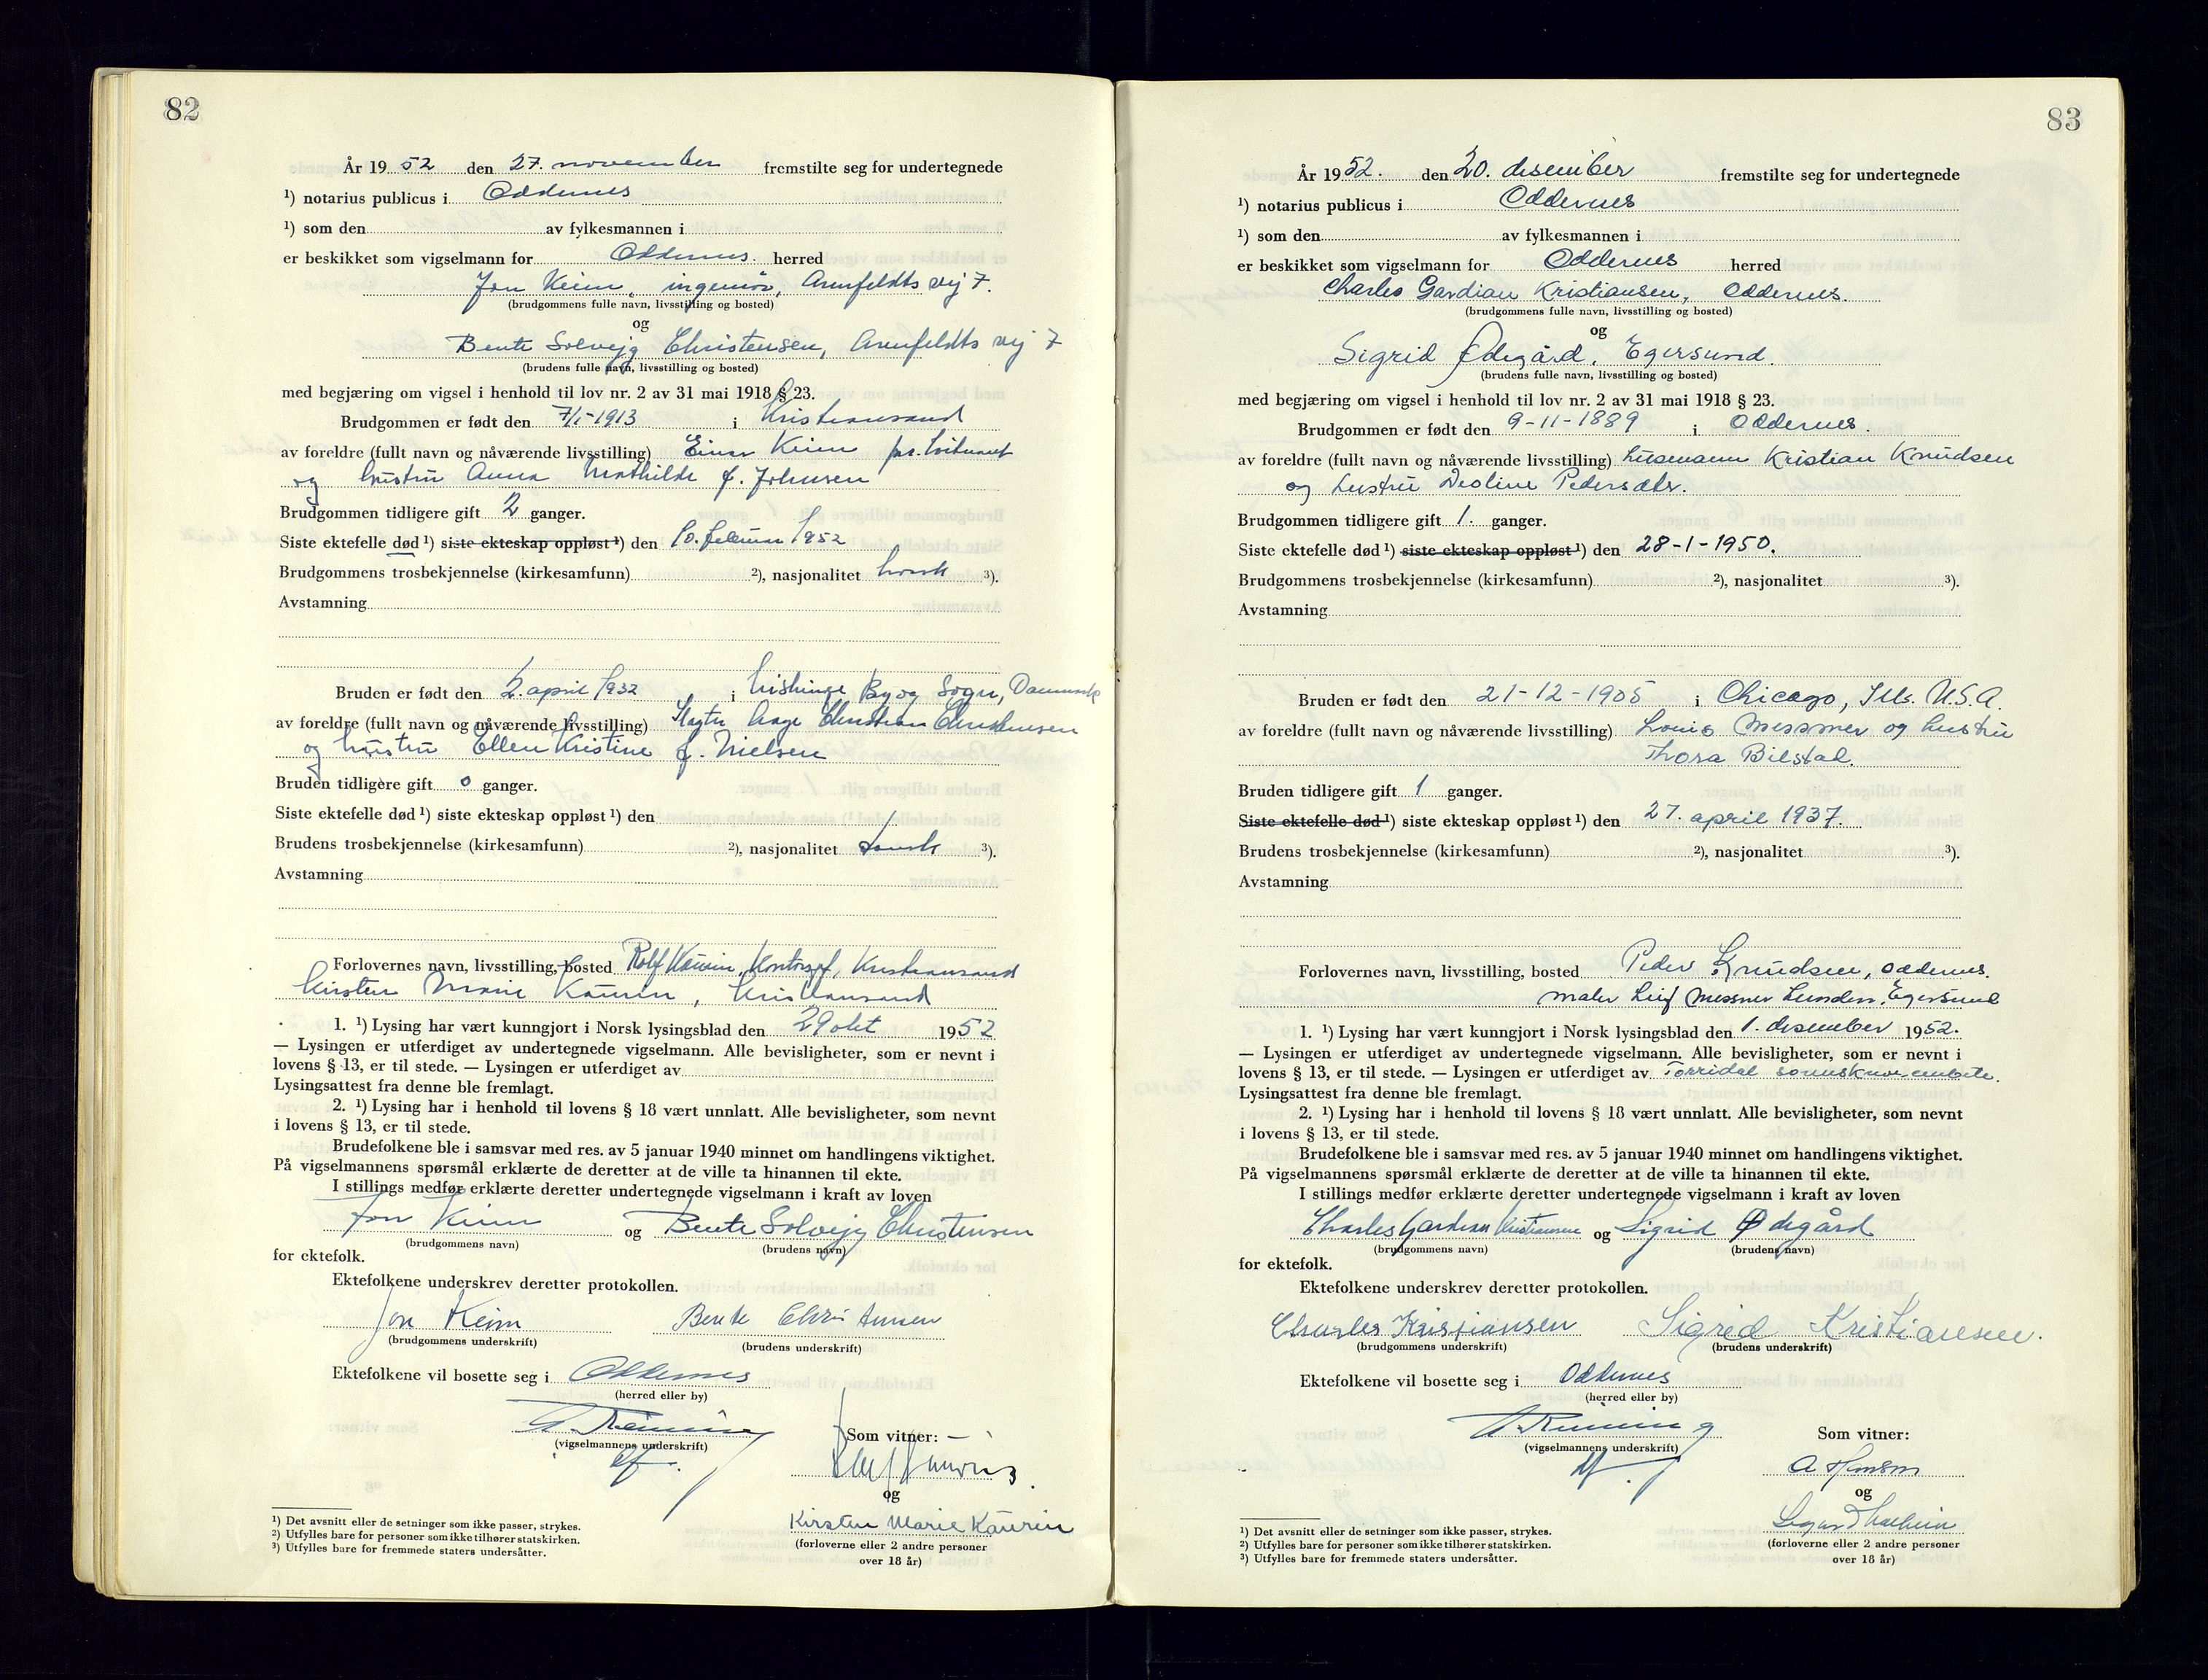 82
År 1952 den 27. november fremstilte seg for undertegnede
¹) notarius publicus i Oddernes
¹) som den av fylkesmannen i
er beskikket som vigselmann for Oddernes. herred
Jon Keim, ingeniør, Arenfeldts vej 7.
(brudgommens fulle navn, livsstilling og bosted)
og
Bente Solvejg Christensen, Arenfeldts vej 7
(brudens fulle navn, livsstilling og bosted)
med begjæring om vigsel i henhold til lov nr. 2 av 31 mai 1918 § 23.
Brudgommen er født den 7/1-1913 i Kristiansand
av foreldre (fullt navn og nåværende livsstilling) Einar Keim
og hustru Anna Mathilde f. Johnsen
Brudgommen tidligere gift 2 ganger.
Siste ektefelle død ¹) siste ekteskap oppløst ¹) den 10. februar 1952
Brudgommens trosbekjennelse (kirkesamfunn) ²), nasjonalitet norsk ³).
Avstamning
Bruden er født den 2. april 1932 i By og Sogn, Danmark
av foreldre (fullt navn og nåværende livsstilling) Slagter Aage Christian Christensen
og hustru Ellen Kristine f. Nielsen
Bruden tidligere gift 0 ganger.
Siste ektefelle død ¹) siste ekteskap oppløst ¹) den
Brudens trosbekjennelse (kirkesamfunn) ²), nasjonalitet dansk ³).
Avstamning
Forlovernes navn, livsstilling, bosted Rolf Kaurin, Kontorsjef, Kristiansand
Kirsten Marie Kaurin, Kristiansand
1. ¹) Lysing har vært kunngjort i Norsk lysingsblad den 29 okt 1952
— Lysingen er utferdiget av undertegnede vigselmann. Alle bevisligheter, som er nevnt i
lovens § 13, er til stede. — Lysingen er utferdiget av
Lysingsattest fra denne ble fremlagt.
2. ¹) Lysing har i henhold til lovens § 18 vært unnlatt. Alle bevisligheter, som nevnt
i lovens § 13, er til stede.
Brudefolkene ble i samsvar med res. av 5 januar 1940 minnet om handlingens viktighet.
På vigselmannens spørsmål erklærte de deretter at de ville ta hinannen til ekte.
I stillings medfør erklærte deretter undertegnede vigselmann i kraft av loven
Jon Keim og Bente Solvejg Christensen
(brudgommens navn) (brudens navn)
for ektefolk.
Ektefolkene underskrev deretter protokollen.
Jon Keim Bente Christensen
(brudgommens underskrift) (brudens underskrift)
Ektefolkene vil bosette seg i Oddernes
(herred eller by)
(vigselmannens underskrift)
Som vitner:
og
Kirsten Marie Kaurin
(forloverne eller 2 andre personer
over 18 år)
¹) Det avsnitt eller de setninger som ikke passer, strykes.
²) Utfylles bare for personer som ikke tilhører statskirken.
³) Utfylles bare for fremmede staters undersåtter.
83
År 1952. den 20. desember fremstilte seg for undertegnede
¹) notarius publicus i Oddernes
¹) som den av fylkesmannen i
er beskikket som vigselmann for Oddernes herred
Charles Gardian Kristiansen, Oddernes.
(brudgommens fulle navn, livsstilling og bosted)
og
Sigrid Ødegård, Egersund.
(brudens fulle navn, livsstilling og bosted)
med begjæring om vigsel i henhold til lov nr. 2 av 31 mai 1918 § 23.
Brudgommen er født den 9-11-1889 i Oddernes.
av foreldre (fullt navn og nåværende livsstilling) husmann Kristian Knudsen
og hustru Deoline Pedersdtr.
Brudgommen tidligere gift 1. ganger.
Siste ektefelle død ¹) siste ekteskap oppløst ¹) den 28-1-1950.
Brudgommens trosbekjennelse (kirkesamfunn) ²), nasjonalitet ³).
Avstamning
Bruden er født den 21-12-1905 i Chicago, Ills. U.S.A.
av foreldre (fullt navn og nåværende livsstilling) Louis Messmer og hustru
Thora Bilstad.
Bruden tidligere gift 1 ganger.
Siste ektefelle død ¹) siste ekteskap oppløst ¹) den 27. april 1937.
Brudens trosbekjennelse (kirkesamfunn) ²), nasjonalitet ³).
Avstamning
Forlovernes navn, livsstilling, bosted Peder Knudsen, Oddernes.
maler Leif Messner Lunden, Egersund
1. ¹) Lysing har vært kunngjort i Norsk lysingsblad den 1. desember 1952.
— Lysingen er utferdiget av undertegnede vigselmann. Alle bevisligheter, som er nevnt i
lovens § 13, er til stede. — Lysingen er utferdiget av Torridal sorenskriverembete.
Lysingsattest fra denne ble fremlagt.
2. ¹) Lysing har i henhold til lovens § 18 vært unnlatt. Alle bevisligheter, som nevnt
i lovens § 13, er til stede.
Brudefolkene ble i samsvar med res. av 5 januar 1940 minnet om handlingens viktighet.
På vigselmannens spørsmål erklærte de deretter at de ville ta hinannen til ekte.
I stillings medfør erklærte deretter undertegnede vigselmann i kraft av loven
Charles Gardian Kristiansen og Sigrid Ødegård
(brudgommens navn) (brudens navn)
for ektefolk.
Ektefolkene underskrev deretter protokollen.
Charles Kristiansen Sigrid Kristiansen.
(brudgommens underskrift) (brudens underskrift)
Ektefolkene vil bosette seg i Oddernes
(herred eller by)
(vigselmannens underskrift)
Som vitner:
og
(forloverne eller 2 andre personer
over 18 år)
¹) Det avsnitt eller de setninger som ikke passer, strykes.
²) Utfylles bare for personer som ikke tilhører statskirken.
³) Utfylles bare for fremmede staters undersåtter.